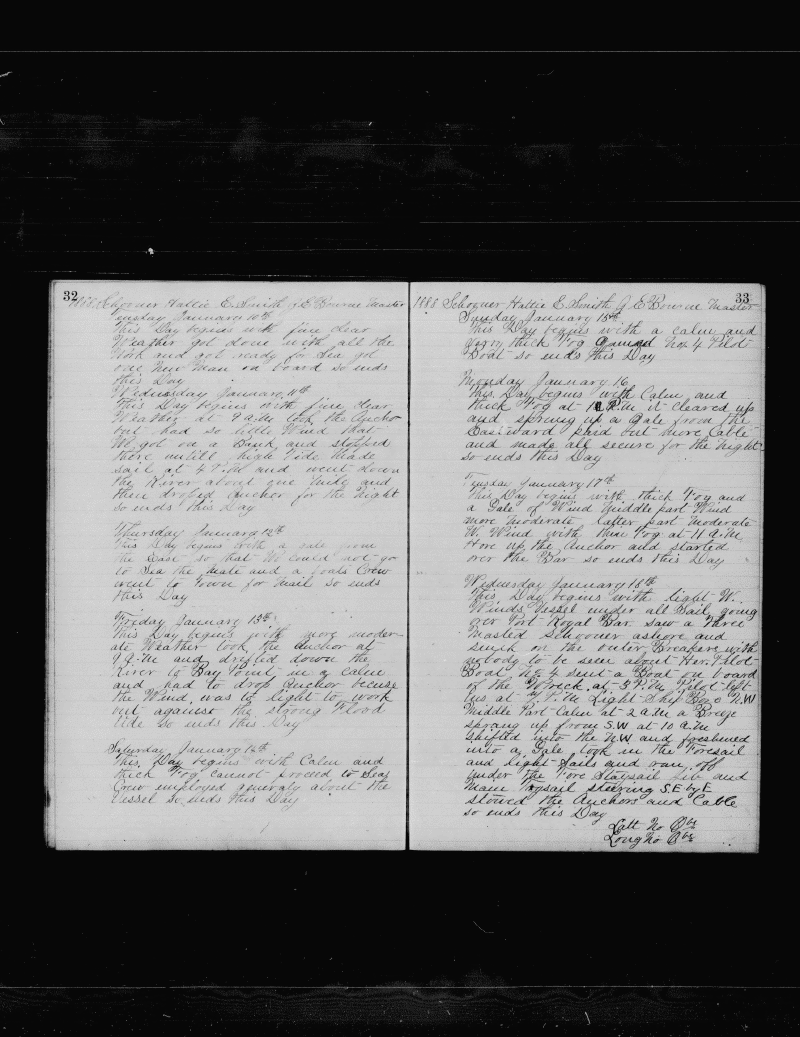 32
1888 Schooner Hattie E. Smith G E Bourne Master
Tuesday January 10th
This Day begins with fine clear
Weather got done with all the
Work and got ready for Sea got
one New Man on board so ends
this Day
Wednesday January 11th
This Day begins with fine clear
Weather at 9 A.M took the Ancho
but had so little Wind that
We got on a Bank and stopped
there untill high Tide Made
sail at 4 P.M and went down
the River about one Mile and
then droped Anchor for the Night
so ends this Day
Thursday January 12th
This Day begins with a gale from
the East so that We could not go
to Sea the Mate and a Boats Crew
went to Town for Mail so ends
this Day
Friday January 13th
This Day begins with more moder-
ate Weather took the Anchor at
9 A.M and drifted down the
River to Bay Point in a calm
and had to drop Anchor becuse
the Wind was to light to work
out against the strong Flood
tide so ends this Day
Saturday January 14th
This Day begins with Calm and
thick Fog cannot proceed to Sea
Crew employed generaly about the
Vessel so ends this Day
33
1888 Schooner Hattie E. Smith G E Bourne Master
Sunday January 15th
This Day begins with a calm and
very thick Fog No. 4 Pilot
Boat so ends this Day
Monday January 16
This Day begins with Calm and
thick Fog at P.M it cleared up
and sprung up a Gale from the
Eastward paid out more Cable
and made all secure for the Night
so ends this Day
Tuesday January 17th
This Day begins with thick Fog and
a Gale of Wind Middle part Wind
more moderate latter part Moderate
W. Wind with thin Fog at 11 A.M
Hove up the Anchor and started
over the Bar so ends this Day
Wednesday January 18th
This Day begins with light W.
Winds Vessel under all Sail going
over Port Royal Bar saw a Three
Masted Schooner ashore and
sunk on the outer Breakers with
nobody to be seen about Her. Pilot
Boat No. 4 sent a Boat on board
of the Wreck at 3 P.M Pilot left
us at P.M Light Ship N.W
Middle Part Calm at 2 A.M a Breze
sprang up from S.W at 10 A.M
shifted into the N.W and freshened
into a Gale took in the Foresail
and light Sails and ran off
under the Fore Staysail Jib and
Main Trysail steering S.E by E
stowed the Anchors and Cable
so ends this Day
Latt No Obs
Long No Obs